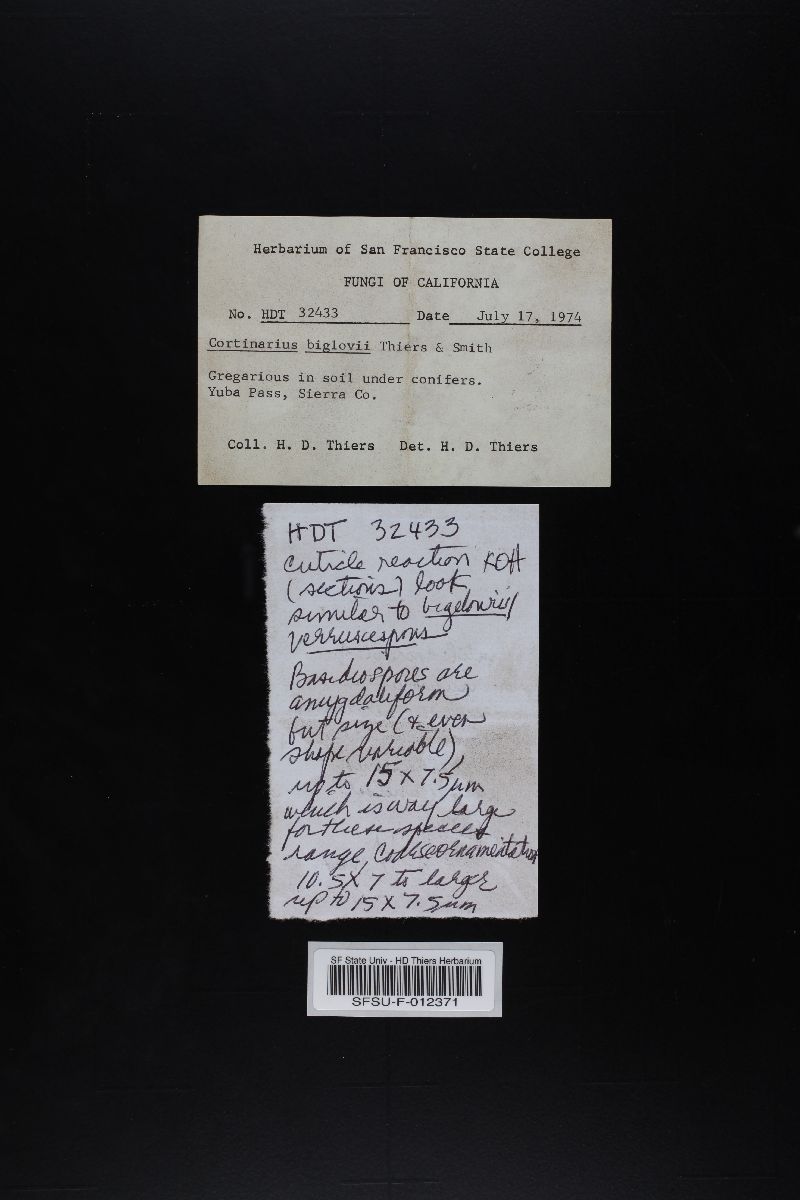 Herbarium of San Francisco State College
FUNGI OF CALIFORNIA
No. HDT 32433 Date July 17, 1974
Cortinarius biglovii Thiers & Smith
Gregarious in soil under conifers.
Yuba Pass, Sierra Co.
Coll. H. D. Thiers Det. H. D. Thiers
HDT 32433
cuticle reaction KOH
(sections) look
similar to
Basidiospores are
amygdaliform
but size (& even
shape variable),
up to 15 X 7.5 µm
which is way large
for these species
range, Coarse ornamentation
10.5 X 7 to larger
up to 15 X 7.5 µm
SF State Univ - HD Thiers Herbarium
SFSU-F-012371